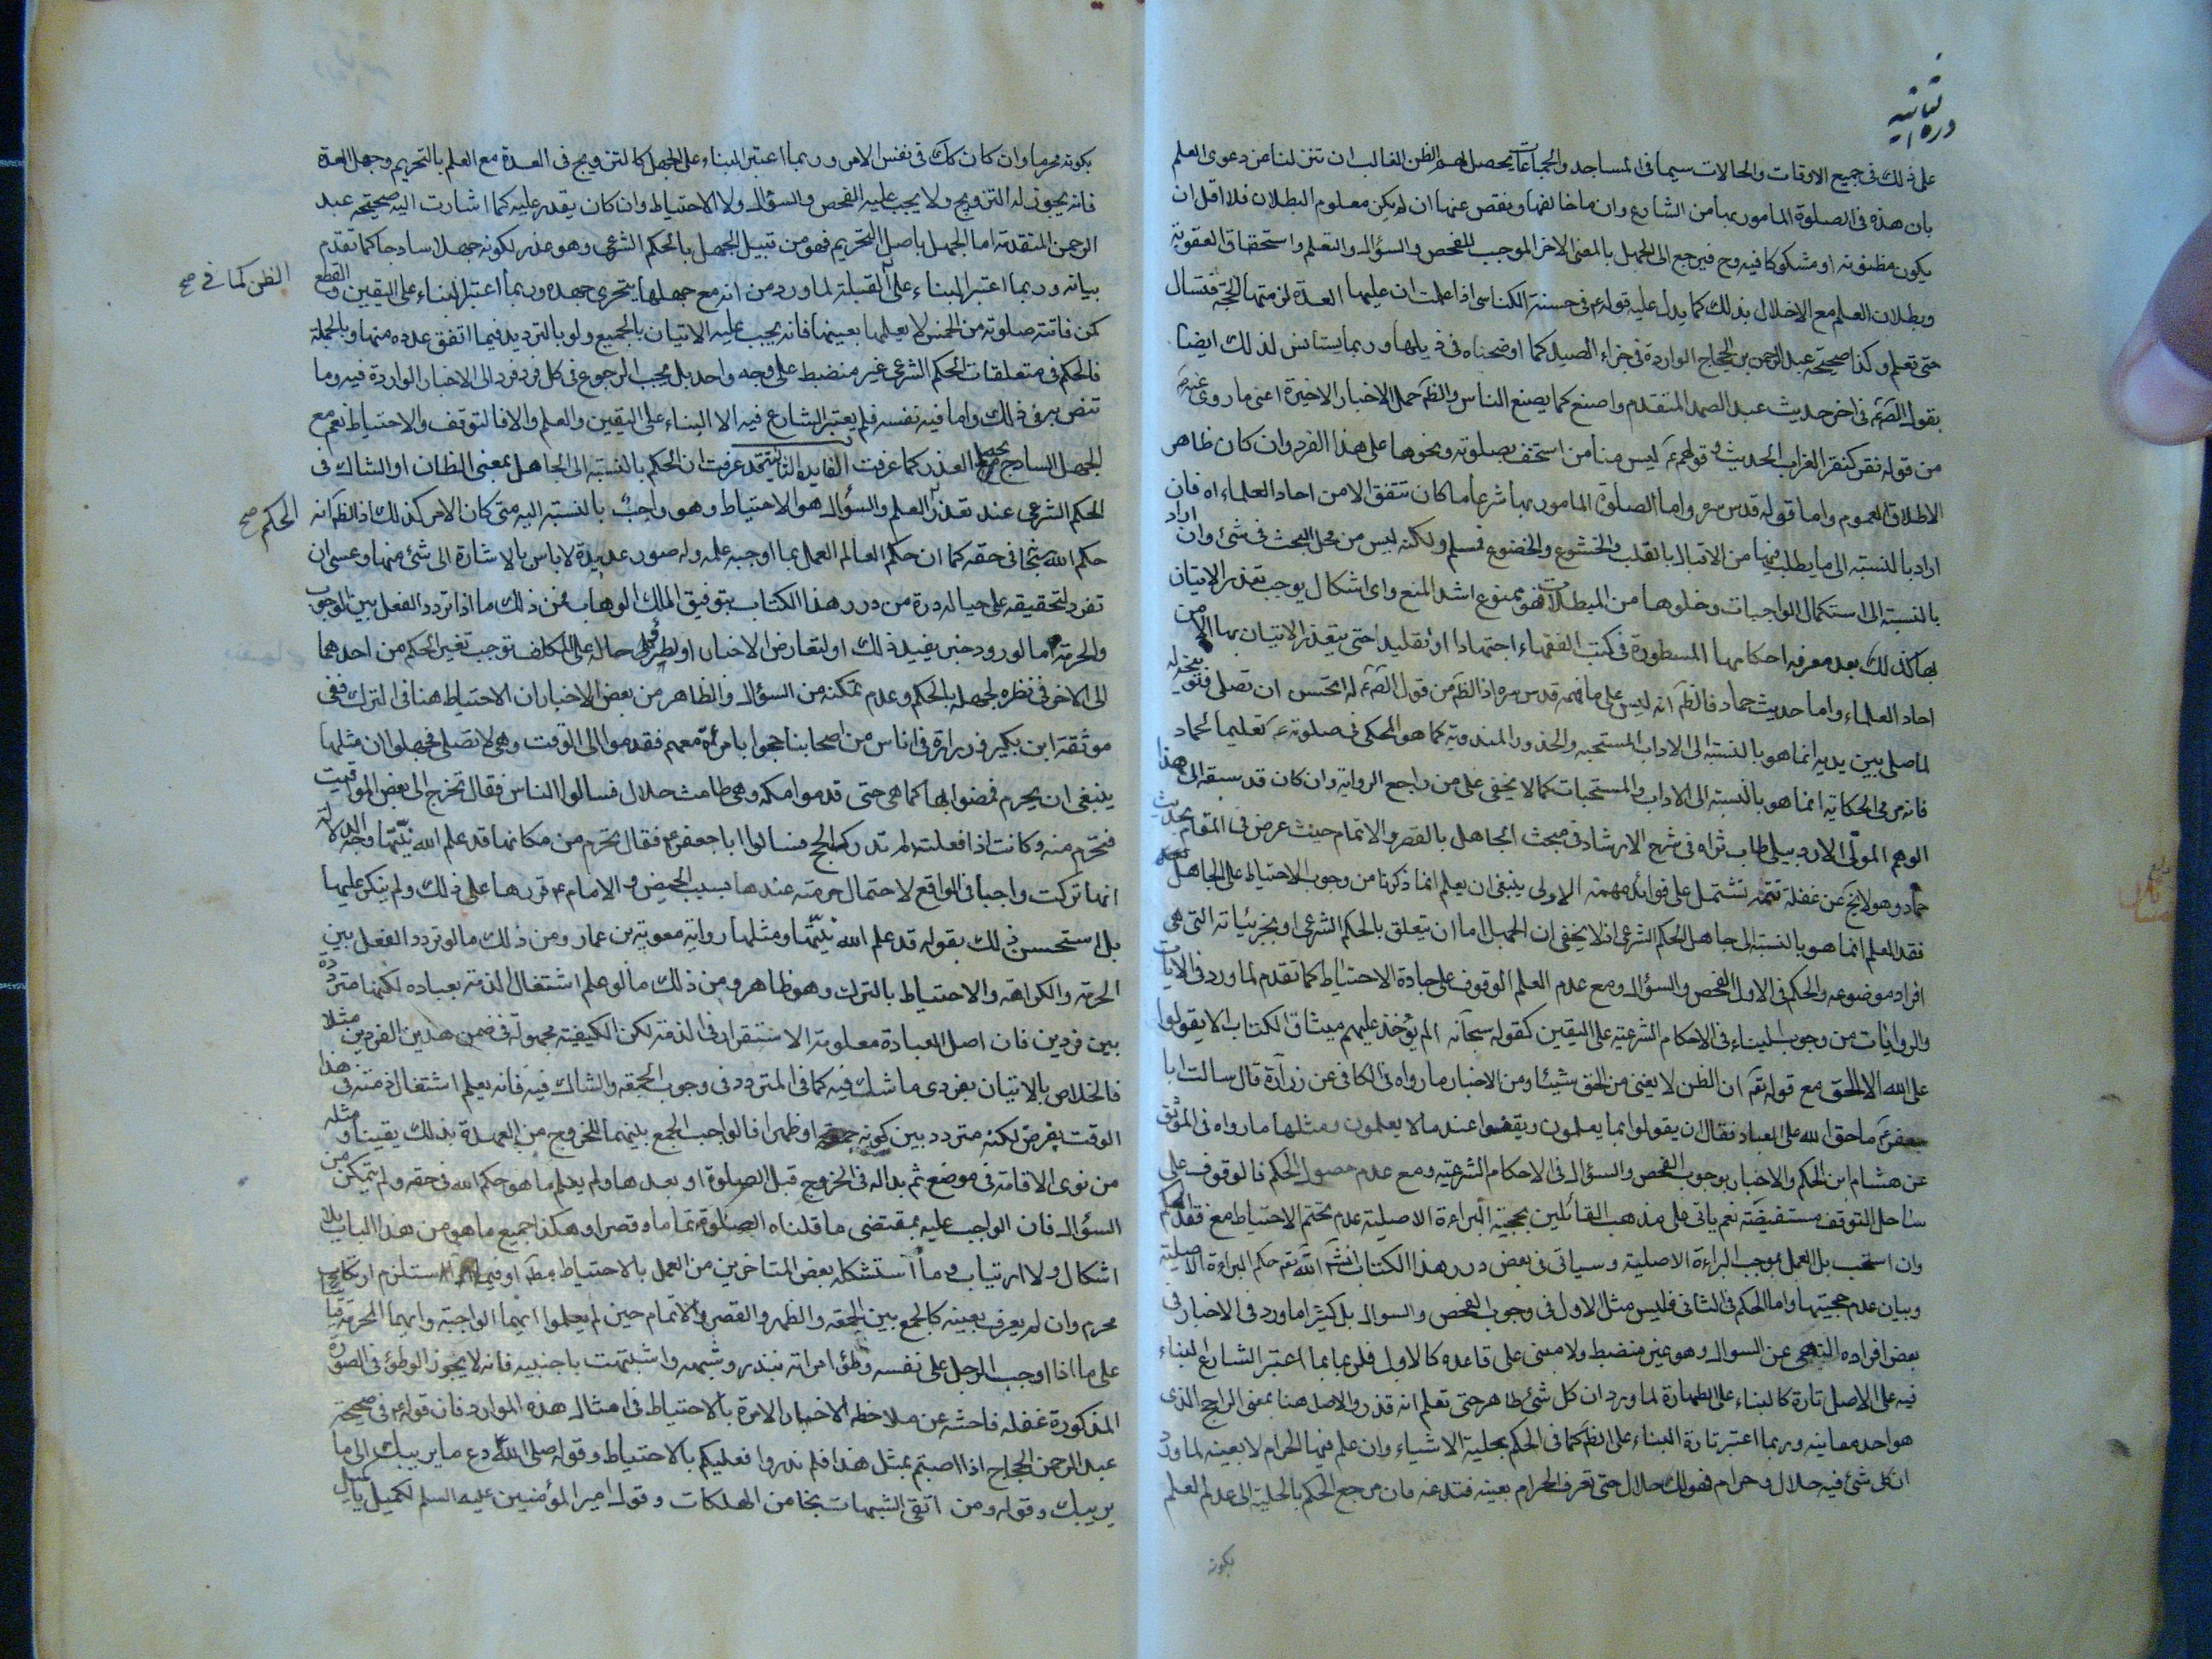 ثمانيه
دره
على ذلك فى جميع الاوقات والحالات سيما فى المساجد والجماعات يحصل لهم الظن الغالب ان تنزلنا عن دعوى العلم
بان هذه فى الصلوة المامور بها من الشارع وان ما خالفها ونقص عنها ان لم يكن معلوم البطلان فلا اقل ان
يكون مظنونه او مشكوكا فيه وح فيرجع الى الجهل بالمعنى الاخر الموجب للفحص والسؤال والتعلم واستحقاق العقوبة
وبطلان العلم مع الاخلال بذلك كما يدل عليه قوله ع فى حسنة الكناسى اذا علمت ان عليها العدة لزمتها الحجة فتسال
حتى تعلم وكذا صحيحة عبد الرحمن بن الحجاج الواردة فى جزاء الصيد كما اوضحناه فى ذيلها وربما يستانس لذلك ايضا
بقول الصم فى اخر حديث عبد الصمد المتقدم واصنع كما يصنع الناس والظم حمل الاخبار الاخيرة اعنى ما روى عنهم
من قوله نقر كنقر الغراب الحديث وقولهم ليس منا من استخف بصلوته ونحوها على هذا الفرد وان كان ظاهر
الاطلاق العموم واما قوله قدس سره واما الصلوة المامور بها شرعا ما كان تتفق الا من احاد العلماء اه فان
اراد بالنسبة الى ما يطلب فيها من الاقبال بالقلب والخشوع والخضوع فمسلم ولكنه ليس من محل البحث فى شئ وان اراد
بالنسبة الى استكمال الواجبات وخلوها من المبطلات فهو ممنوع اشد المنع واى اشكال يوجب تعذر الاتيان
بها كذلك بعد معرفه احكامها المسطورة فى كتب الفقهاء اجتهادا او تقليدا حتى يتعذر الاتيان بها الا من
احاد العلماء واما حديث حماد فالظم انه ليس على ما فهمه قدس سره اذ الظم من قول الصم له اتحسن ان تصلى
لما صلى بين يديه انما هو بالنسبة الى الاداب المستحبه والحدود المندوبة كما هو المحكى فى صلوته ع تعليما لحماد
فانه فى الحكايه انما هو بالنسبة الى الاداب والمستحبات كما لا يخفى على من راجع الرواية وان كان قد سبقه الى هذا
الوهم المولى الاردبيلى طاب ثراه فى شرح الارشاد فى مبحث الجاهل بالقصر والاتمام حيث عرض فى المقام بحديث
حماد وهو لا يخ عن غفلة تتمه تشتمل على فوائد مهمة الاولى ينبغى ان يعلم انما ذكرنا من وجوب الاحتياط على الجاهل
فقد العلم انما هو بالنسبة الى جاهل الحكم الشرعى اذ لا يخفى ان الجهل اما ان يتعلق بالحكم الشرعى او بجزئياته التى هى
افراد موضوعه والحكم فى الاول الفحص والسؤال ومع عدم العلم الوقوف على جادة الاحتياط كما تقدم لما ورد فى الايات
والروايات من وجوب البناء فى الاحكام الشرعية على اليقين كقوله سبحانه الم يؤخذ عليهم ميثاق الكتاب الا يقولوا
على الله الا الحق مع قوله تعم ان الظن لا يغنى من الحق شيئا ومن الاخبار ما رواه فى الكافى عن زرارة قال سالت ابا
جعفر ع ما حق الله على العباد فقال ان يقولوا بما يعلمون ويقفوا عند ما لا يعلمون ومثلها ما رواه فى الموثق
عن هشام ابن الحكم والاخبار بوجوب الفحص والسؤال فى الاحكام الشرعية ومع عدم حصول الحكم فالوقوف على
ساحل التوقف مستفيضة نعم ياتى على مذهب القائلين بحجية البراءة الاصلية عدم تحتم الاحتياط مع فقد الحكم
وان استحب بل العمل بموجب البراءة الاصلية وسياتى فى بعض درر هذا الكتاب انشم الله تعم حكم البراءة الاصلية
وبيان عدم حجيتها واما الحكم فى الثانى فليس مثل الاول فى وجوب الفحص والسوال بل كثيرا ما ورد فى الاخبار فى
بعض افراده النهى عن السوال وهو غير منضبط ولا مبنى على قاعده كالاول فلربما اعتبر الشارع البناء
فيه على الاصل تارة كالبناء على الطهارة لما ورد ان كل شئ طاهر حتى تعلم انه قذر والاصل هنا بمعنى الراجح الذى
هو احد معانيه وربما اعتبر تارة البناء على الظم كما فى الحكم بحلية الاشياء وان علم فيها الحرام لا بعينه لما ورد
ان كل شئ فيه حلال وحرام فهو لك حلال حتى تعرف الحرام بعينه فتدعه فان مرجع الحكم بالحلية الى عدم العلم
بكونه
بكونه محرما وان كان كك فى نفس الامر وربما اعتبر البناء على الجهل كالتزويج فى العدة مع العلم بالتحريم وجهل العدة
فانه يجوز له التزويج ولا يجب عليه الفحص والسؤال ولا الاحتياط وان كان يقدر عليه كما اشارت اليه صحيحة عبد
الرحمن المتقدمة اما الجهل باصل التحريم فهو من قبيل الجهل بالحكم الشرعى وهو عذر لكونه جهلا ساذجا كما تقدم
بيانه وربما اعتبر البناء على القبلة لما ورد من انه مع جهلها يتحرى جهده وربما اعتبر البناء على اليقين والقطع
الظن كما فى صح
كمن فاتته صلوة من الخمس لا يعلمها بعينها فانه يجب عليه الاتيان بالجميع ولو بالترديد فيما اتفق عدده منها وبالجملة
فالحكم فى متعلقات الحكم الشرعى غير منضبط على وجه واحد بل يجب الرجوع فى كل فرد فرد الى الاخبار الواردة فيه وما
تنص به فى ذلك واما فيه نفسه فلم يعتبر الشارع فيه الا البناء على اليقين والعلم والا فالتوقف والاحتياط نعم مع
الجهل الساذج يحصل العذر كما عرفت الفايدة الثانية قد عرفت ان الحكم بالنسبة الى الجاهل بمعنى الظان او الشاك فى
الحكم الشرعى عند تعذر العلم والسؤال هو الاحتياط وهو واجب بالنسبة اليه متى كان الامر كذلك اذ الظم انه
الحكم صح
حكم الله سبحانه فى حقه كما ان حكم العالم العمل بما اوجبه علمه وله صور عديدة لا باس بالاشارة الى شئ منها وعسى ان
تفرد لتحقيقه على حياله درة من درر هذا الكتاب بتوفيق الملك الوهاب فمن ذلك ما اذا تردد الفعل بين الوجوب
والحرمة اما لورود خبر يفيد ذلك او لتعارض الاخبار او لطرو حالة على المكلف توجب تغير الحكم من احدهما
الى الاخر فى نظره لجهله بالحكم وعدم تمكنه من السؤال والظاهر من بعض الاخبار ان الاحتياط هنا فى الترك ففى
موثقة ابن بكير عن زرارة فى اناس من اصحابنا حجوا بامراة معهم فقدموا الى الوقت وهى لا تصلى فجهلوا ان مثلها
ينبغى ان يحرم فمضوا بها كما هى حتى قدموا مكه وهى طامث حلال فسالوا الناس فقال تخرج الى بعض المواقيت
فتحرم منه وكانت اذا فعلت لم تدرك الحج فسالوا ابا جعفر ع فقال تحرم من مكانها قد علم الله نيتها وجه الدلالة
انها تركت واجبا فى الواقع لاحتمال حرمته عندها بسبب الحيض والامام ع قررها على ذلك ولم ينكر عليها
بل استحسن ذلك بقوله قد علم الله نيتها ومثلها رواية معوية بن عمار ومن ذلك ما لو تردد الفعل بين
الحرمة والكراهة والاحتياط بالترك وهو ظاهر ومن ذلك ما لو علم اشتغال الذمة بعباده لكنها مترددة
بين فردين فان اصل العبادة معلومة الاستقرار فى الذمة لكن الكيفية مجهولة فى ضمن هذين الفردين مثلا
فالخلاص بالاتيان بفردى ما شك فيه كما فى المتردد فى وجوب الجمعه والشاك فيه فانه يعلم اشتغال ذمته فى هذا
الوقت بفرض لكنه متردد بين كونه جمعة او ظهرا فالواجب الجمع بينهما للخروج من العهدة بذلك يقينا ومثله
من نوى الاقامة فى موضع ثم بدا له فى الخروج قبل الصلوة او بعدها ولم يعلم ما هو حكم الله فى حقه ولم يتمكن من
السؤال فان الواجب عليه بمقتضى ما قلناه الصلوة تماما وقصرا وهكذا جميع ما هو من هذا الباب بلا
اشكال ولا ارتياب وما استشكله بعض المتاخرين من العمل بالاحتياط مطم او فيما استلزم ارتكاب
محرم وان لم يعرف بعينه كالجمع بين الجمعه والظهر والقصر والاتمام حين لم يعلموا ايهما الواجبة وايهما المحرمة قياسا
على ما اذا اوجب الرجل على نفسه وطئ امراته بنذر وشبهه واشتبهت باجنبيه فانه لا يجوز الوطئ فى الصورة
المذكورة غفله فاحشه عن ملاحظه الاخبار الامرة بالاحتياط فى امثال هذه الموارد فان قوله ع فى صحيحة
عبد الرحمن الحجاج اذا اصبتم بمثل هذا فلم تدروا فعليكم بالاحتياط وقوله صلى الله دع ما يريبك الى ما لا
يريبك وقوله ومن اتقى الشبهات نجا من الهلكات وقول امير المؤمنين عليه السلم لكميل يا كميل